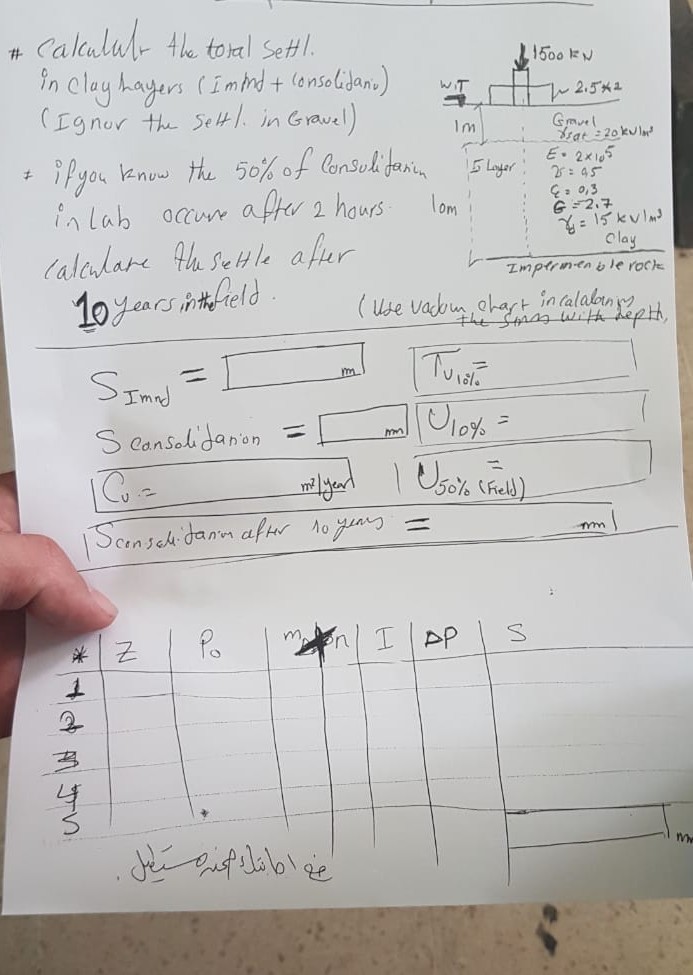 # Calculate the total Settl.
in Clay Layers (Immd + Consolidation)
(Ignor the Settl. in Gravel)
* if you know the 50% of Consolidation
in Lab occure after 2 hours.
Calculate the Settle after
10 years in the field.
1500 kN
W.T
2.5*2
1m
Gravel
γsat = 20 kN/m³
5 Layer
10m
E = 2×10⁵
= 0.3
G = 2.7
= 15 kN/m³
Clay
Impermenble rock
(Use chart in
the with depth,
S Immd = m
Tv10% =
S consolidation = mm
U10% =
Cv = m²/year
U50% (Field) =
S consolidation after 10 years = mm
* Z Po m n I ΔP S
1
2
3
4
5
mm